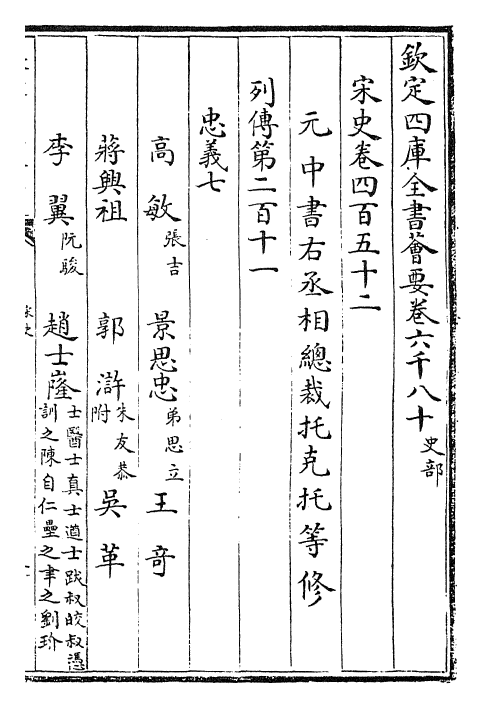 欽定四庫全書薈要卷六千八十 史部
宋史卷四百五十二
元中書右丞相總裁托克托等修
列傳第二百十一
忠義七
高敏 張吉 景思忠 弟思立 王奇
蔣興祖 郭滸 朱友恭附 吳革
李翼 阮駿 趙士㠓 士醫士真士遒士跋叔皎叔憑訓之陳自仁壘之聿之劉玠
宋史